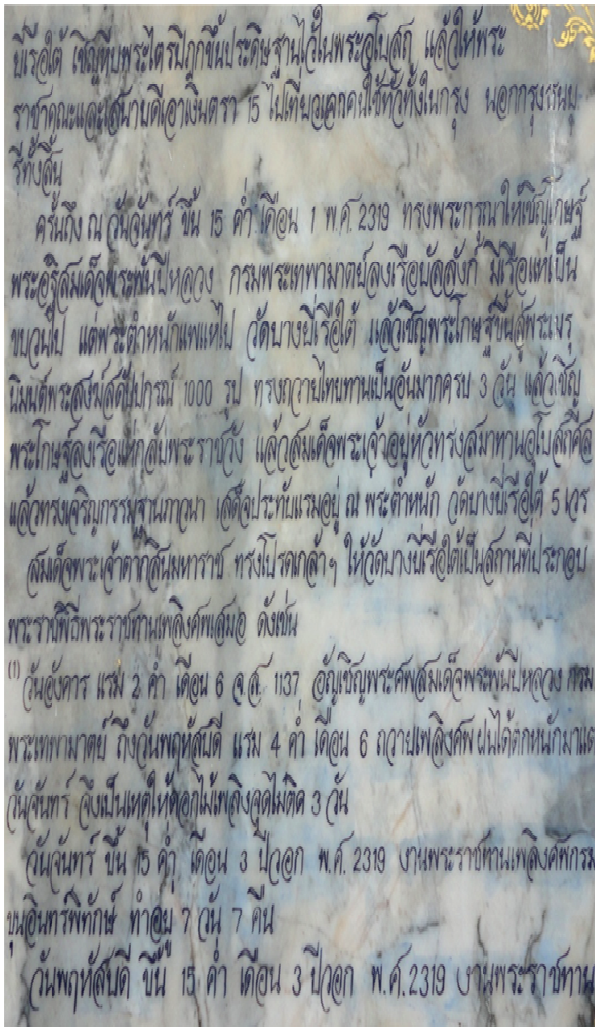 ยี่เรือใต้ เชิญหีบพระไตรปิฎกขึ้นประดิษฐานไว้ในพระอุโบสถ แล้วให้พระ
ราชาคณะและเสนาบดีเอาเงินตรา 15 ไปเที่ยวแจกคนใช้ทั่วทั้งในกรุง นอกกรุงธนบุ
รีทั้งสิ้น
ครั้นถึง ณ วันจันทร์ ขึ้น 15 ค่ำ เดือน 1 พ.ศ. 2319 ทรงพระกรุณาให้เชิญโกษฐ์
พระอัฐิสมเด็จพระพันปีหลวง กรมพระเทพามาตย์ลงเรือบัลลังก์ มีเรือแห่เป็น
ขบวนไป แต่พระตำหนักแพแห่ไป วัดบางยี่เรือใต้ แล้วเชิญพระโกษฐ์ขึ้นสู่พระเมรุ
นิมนต์พระสงฆ์สดับปกรณ์ 1000 รูป ทรงถวายไทยทานเป็นอันมากครบ 3 วัน แล้วเชิญ
พระโกษฐ์ลงเรือแห่กลับพระราชวัง แล้วสมเด็จพระเจ้าอยู่หัวทรงสมาทานอุโบสถศีล
แล้วทรงเจริญกรรมฐานภาวนา เสด็จประทับแรมอยู่ ณ พระตำหนัก วัดบางยี่เรือใต้ 5 เวร
สมเด็จพระเจ้าตากสินมหาราช ทรงโปรดเกล้าฯ ให้วัดบางยี่เรือใต้เป็นสถานที่ประกอบ
พระราชพิธีพระราชทานเพลิงศพเสมอ ดังเช่น
(1) วันอังคาร แรม 2 ค่ำ เดือน 6 จ.ศ. 1137 อัญเชิญพระศพสมเด็จพระพันปีหลวง กรม
พระเทพามาตย์ ถึงวันพฤหัสบดี แรม 4 ค่ำ เดือน 6 ถวายเพลิงศพ ฝนได้ตกหนักมาแต่
วันจันทร์ จึงเป็นเหตุให้ดอกไม้เพลิงจุดไม่ติด 3 วัน
วันจันทร์ ขึ้น 15 ค่ำ เดือน 3 ปีวอก พ.ศ. 2319 งานพระราชทานเพลิงศพกรม
ขุนอินทรพิทักษ์ ทำอยู่ 7 วัน 7 คืน
วันพฤหัสบดี ขึ้น 15 ค่ำ เดือน 3 ปีวอก พ.ศ.2319 งานพระราชทาน